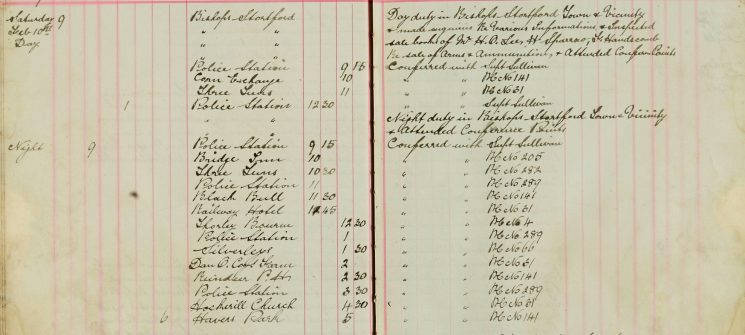 Saturday 9 Bishops Stortford Day duty in Bishops Stortford Town & Vicinity
Feb 10th " " & made enquiries Re Various Informations & Inspected
Day " " sale books of Mr H. A. Lee, H Sparrow, Handscomb
" " Re sale of Arms & Ammunition, & Attended Confer Points
Police Station 9 15 Conferred with Supt Sullivan
Corn Exchange 10 " " PC No 141
Three Tuns 11 " " PC No 31
1 Police Station 12 30 " " Supt Sullivan
" " Night duty in Bishops Stortford Town & Vicinity
" & Attended Conference Points
Night 9 Police Station 9 15 Conferred with Supt Sullivan
Bridge Inn 10 " " PC No 205
Three Tuns 10 30 " " PC No 282
Police Station 11 " " PC No 289
Black Bull 11 30 " " PC No 141
Railway Hotel 12 45 " " PC No 31
Thorley Bourne 12 30 " " PC No 4
Police Station 1 " " PC No 289
Silverleys 1 30 " " PC No 66
Dan O. Farm 2 " " PC No 31
Reindeer P.H 2 30 " " PC No 141
Police Station 3 30 " " PC No 289
Hockerill Church 4 30 " " PC No 31
6 Havers Park 5 " " PC No 141